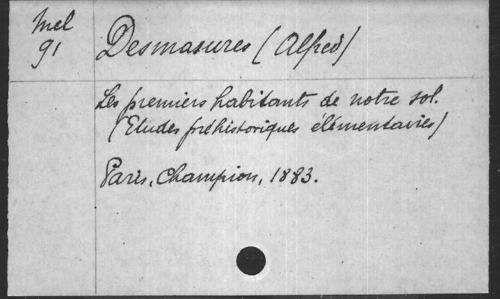 Mel
91
Desmasures (Alfred)
Les premiers habitants de notre sol.
(Etudes préhistoriques élémentaires)
Paris, Champion, 1883.